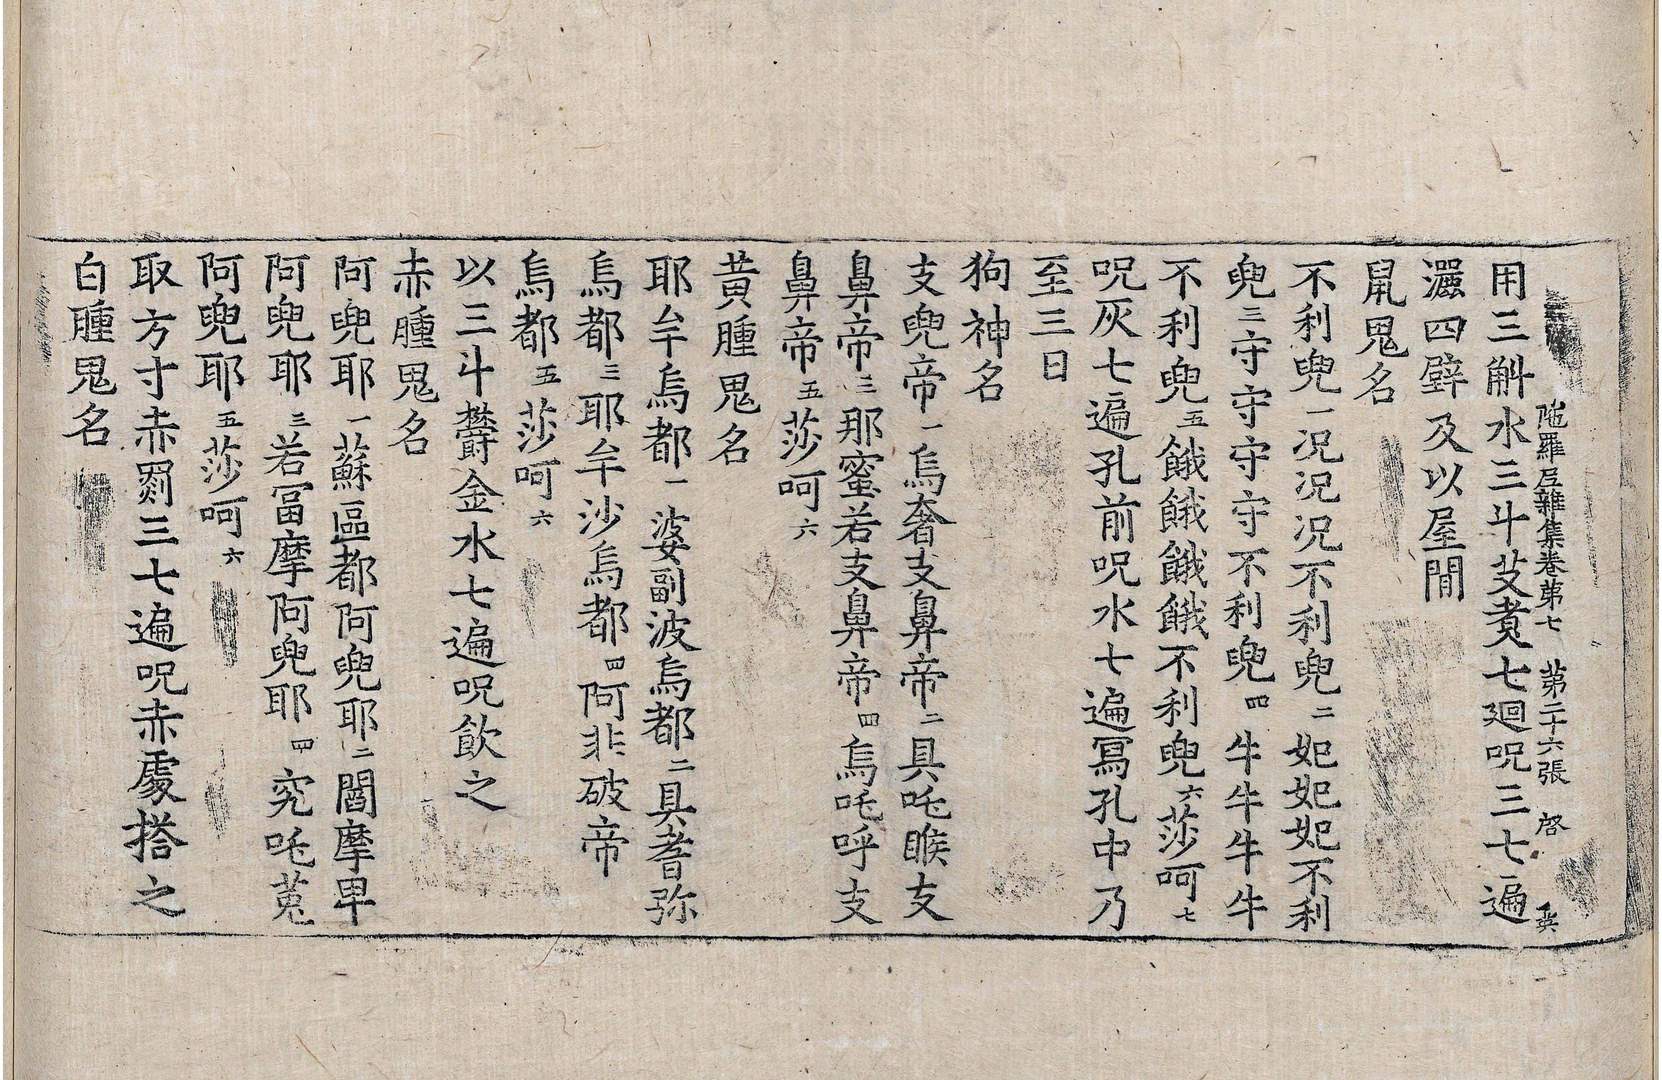 陁羅尼雜集卷苐七 苐二十六張 啓
用三斛水三斗芆煑七廻呪三七遍
灑四壁及以屋間
鼠鬼名
不利兜一况况况不利兜二妃妃妃不利
兜三守守守守不利兜四牛牛牛牛
不利兜五餓餓餓餓不利兜六莎呵七
呪灰七遍孔前呪水七遍冩孔中乃
至三日
狗神名
支兜帝一烏奢支鼻帝二具吒睺支
鼻帝三那蜜若支鼻帝四烏吒呼支
鼻帝五莎呵六
黄腫鬼名
耶牟烏都一婆副波烏都二具耆弥
烏都三耶牟沙烏都四阿非破帝
烏都五莎呵六
以三斗欝金水七遍呪飲之
赤腫鬼名
阿兜耶一蘇區都阿兜耶二閻摩卑
阿兜耶三若冨摩阿兜耶四究吒菟
阿兜耶五莎呵六
取方寸赤罽三七遍呪赤處搭之
白腫鬼名